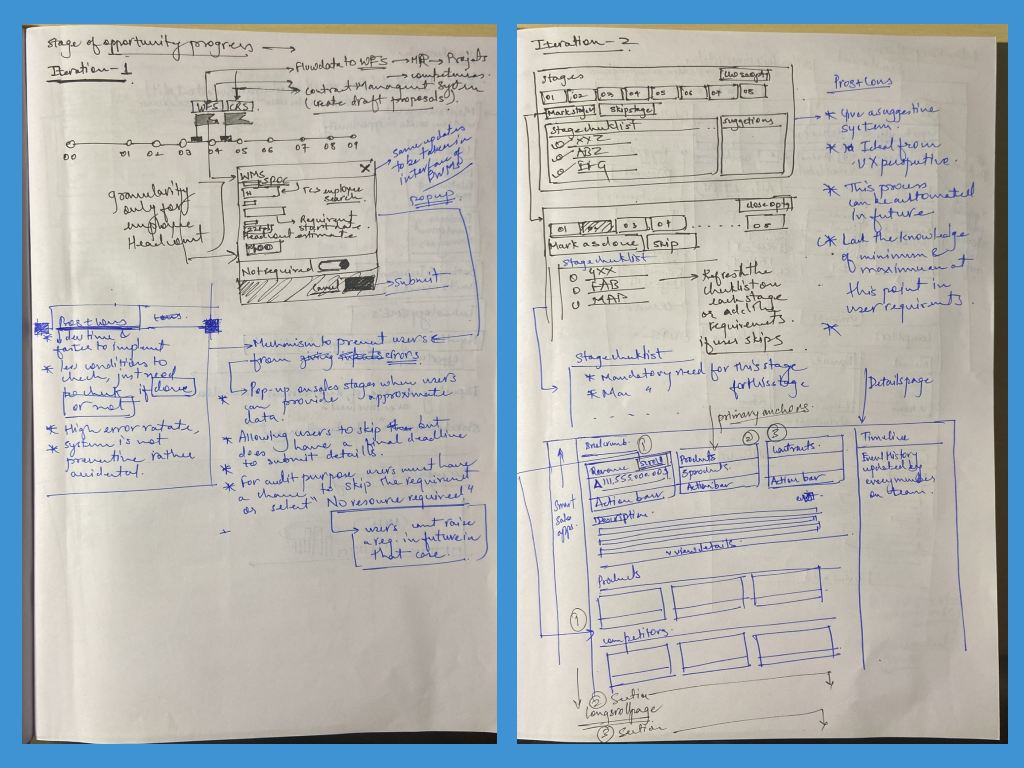 stage of opportunity progress
Iteration-1
Flow data to WFS → HR → Projects
→ competencies.
contract Managment System
(create draft proposals).
WFS
CRS
00
01
02
03
04
05
06
07
08
09
WMS
X
SPOC
employee
search.
Requirmnt
start date
Head count estimate
Not required
Cancel
Submit
granularity
only for
employee
Headcount
same updates
to be taken in
interface of
WMS
popup
Pros + Cons
faster to implant
conditions to
check, just need
to check if done
or not
High error ratate,
system is not
preventive rather
accidental.
Mechnism to prevent users
from giving inputs errors
Pop-up on sales stages when users
can provide approximate
data.
Allowing users to skip but
does have a final deadline
to submit details.
For audit purpose users must have
a chance to skip the required
or select "No resource required"
users cant raise
a req. in future in
that care.
Iteration-2
stages
close oppty
01
02
03
04
05
06
07
08
skip stage
Stage checklist
XYZ
ABZ
Suggestions
close oppty
01
03
04
Mark as done
skip
stage checklist
MAP
Refresh the
checklist on
each stage
or add
requirements
if user skips
Stage checklist
Mandatory need for this stage
for this stage
Pros + Cons
Give a suggestive
system.
Ideal from
UX perspective.
This process
can be automated
in future
Lack the knowledge
of minimum &
maximum at
this point in
user requirmnts.
Details page
primary anchors
Breadcrumb
1
2
3
Revenue
Action bar
Products
5 products
Action bar
Contracts
Action bar
Timeline
Event History
updated by
every member
on team.
Smart
sales
app.
Description.
view details
Products
1
competitors.
2 Section
long scroll page
3 section